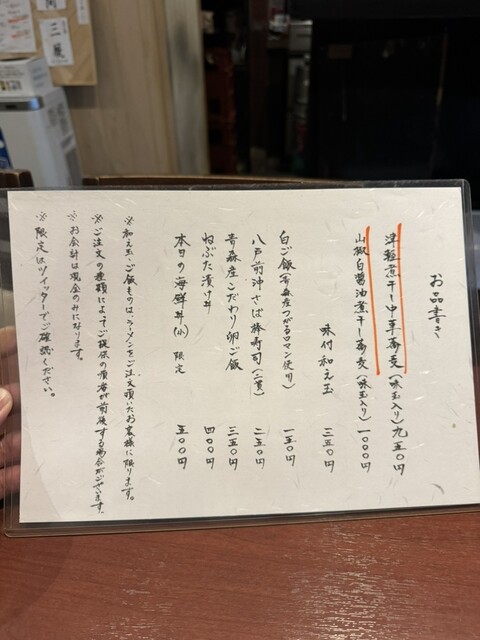 お品書き
津軽煮干中華蕎麦（味玉入り）九五〇円
山椒白醤油煮干し蕎麦（味玉入り）一〇〇〇円
味付和え玉 三五〇円
白ご飯（青森産つがるロマン使用）一五〇円
八戸前沖さば棒寿司（二貫）二五〇円
青森産こだわり卵ご飯 三五〇円
ねぶた漬け丼 四〇〇円
本日の海鮮丼（小）限定 五〇〇円
※和え玉、ご飯ものは、ラーメンをご注文頂いたお客様に限ります。
※ご注文の種類によってご提供の順番が前後する場合がございます。
※お会計は現金のみになります。
※限定はツイッターでご確認ください。